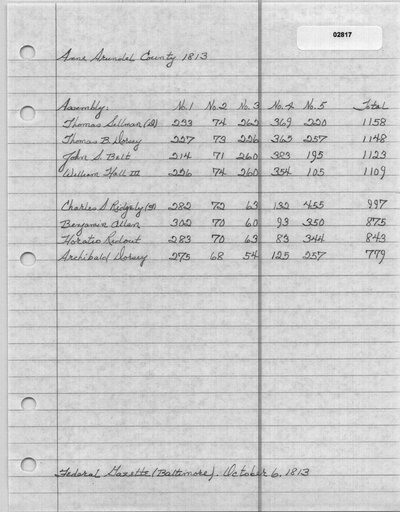 02817
Anne Arundel County 1813
Assembly: No.1 No.2 No.3 No.4 No.5 Total
Thomas Sellman 233 74 262 369 220 1158
Thomas B. Dorsey 227 73 226 365 257 1148
John S. Belt 214 71 260 383 195 1123
William Hall III 226 74 260 354 105 1109
Charles S Ridgely 282 72 63 132 455 997
Benjamin Allen 302 70 60 93 350 875
Horatio Ridout 283 70 63 83 344 843
Archibald Dorsey 275 68 54 125 257 779
Federal Gazette (Baltimore). October 6, 1813